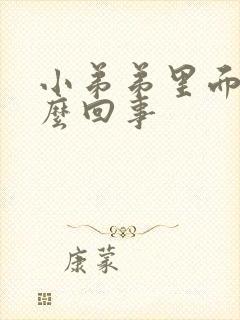 小弟弟里而
麼回事
康蒙